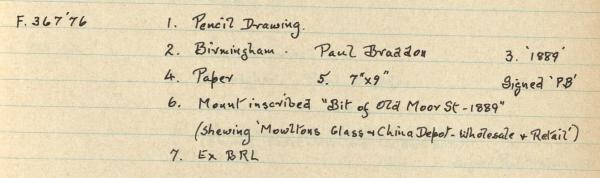 F. 367'76 1. Pencil Drawing.
2. Birmingham. Paul Braddon 3. '1889'
4. Paper 5. 7"x9" Signed 'PB'
6. Mount inscribed "Bit of Old Moor St - 1889"
(Shewing 'Mowltons Glass & China Depot - Wholesale & Retail')
7. Ex BRL